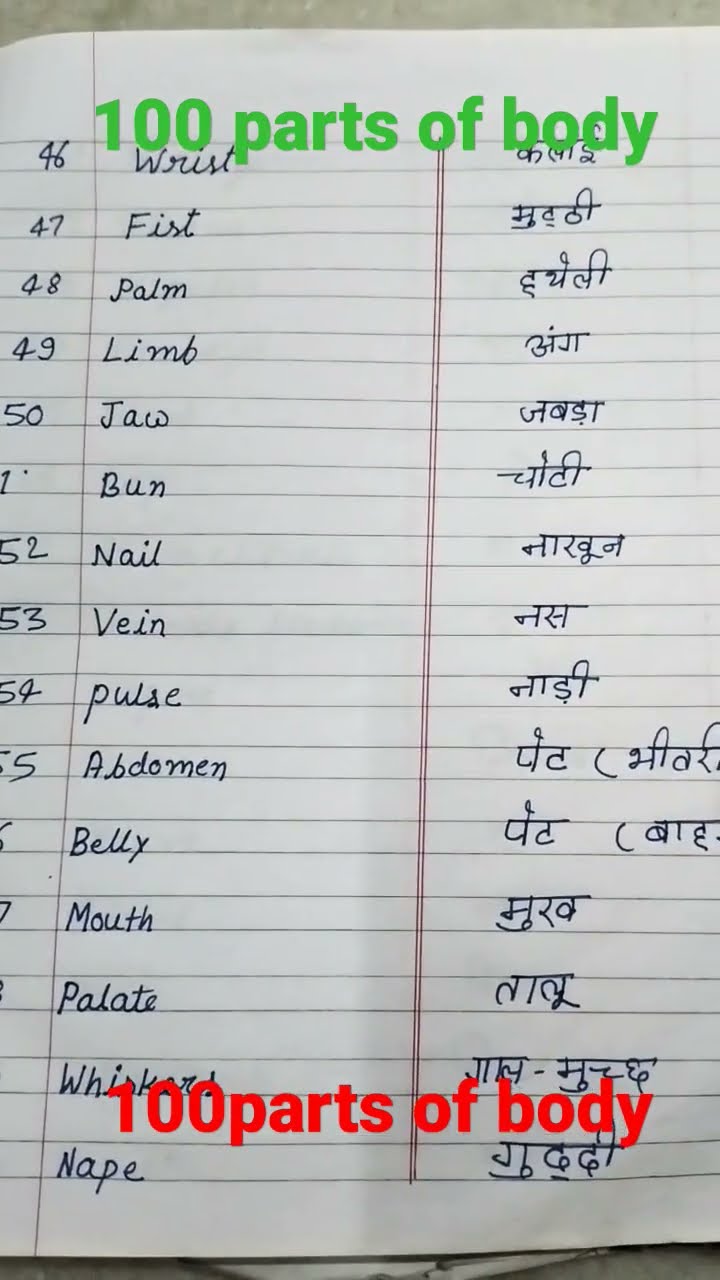 100 parts of body
46 Wrist कलाई
47 Fist मुट्ठी
48 Palm हथेली
49 Limb अंग
50 Jaw जबड़ा
1 Bun चोटी
52 Nail नाखून
53 Vein नस
54 pulse नाड़ी
55 Abdomen पेट (भीतरी
Belly पेट (बाह
7 Mouth मुख
Palate तालू
Whiskers गाल-मुच्छ
100parts of body
Nape गुद्दी